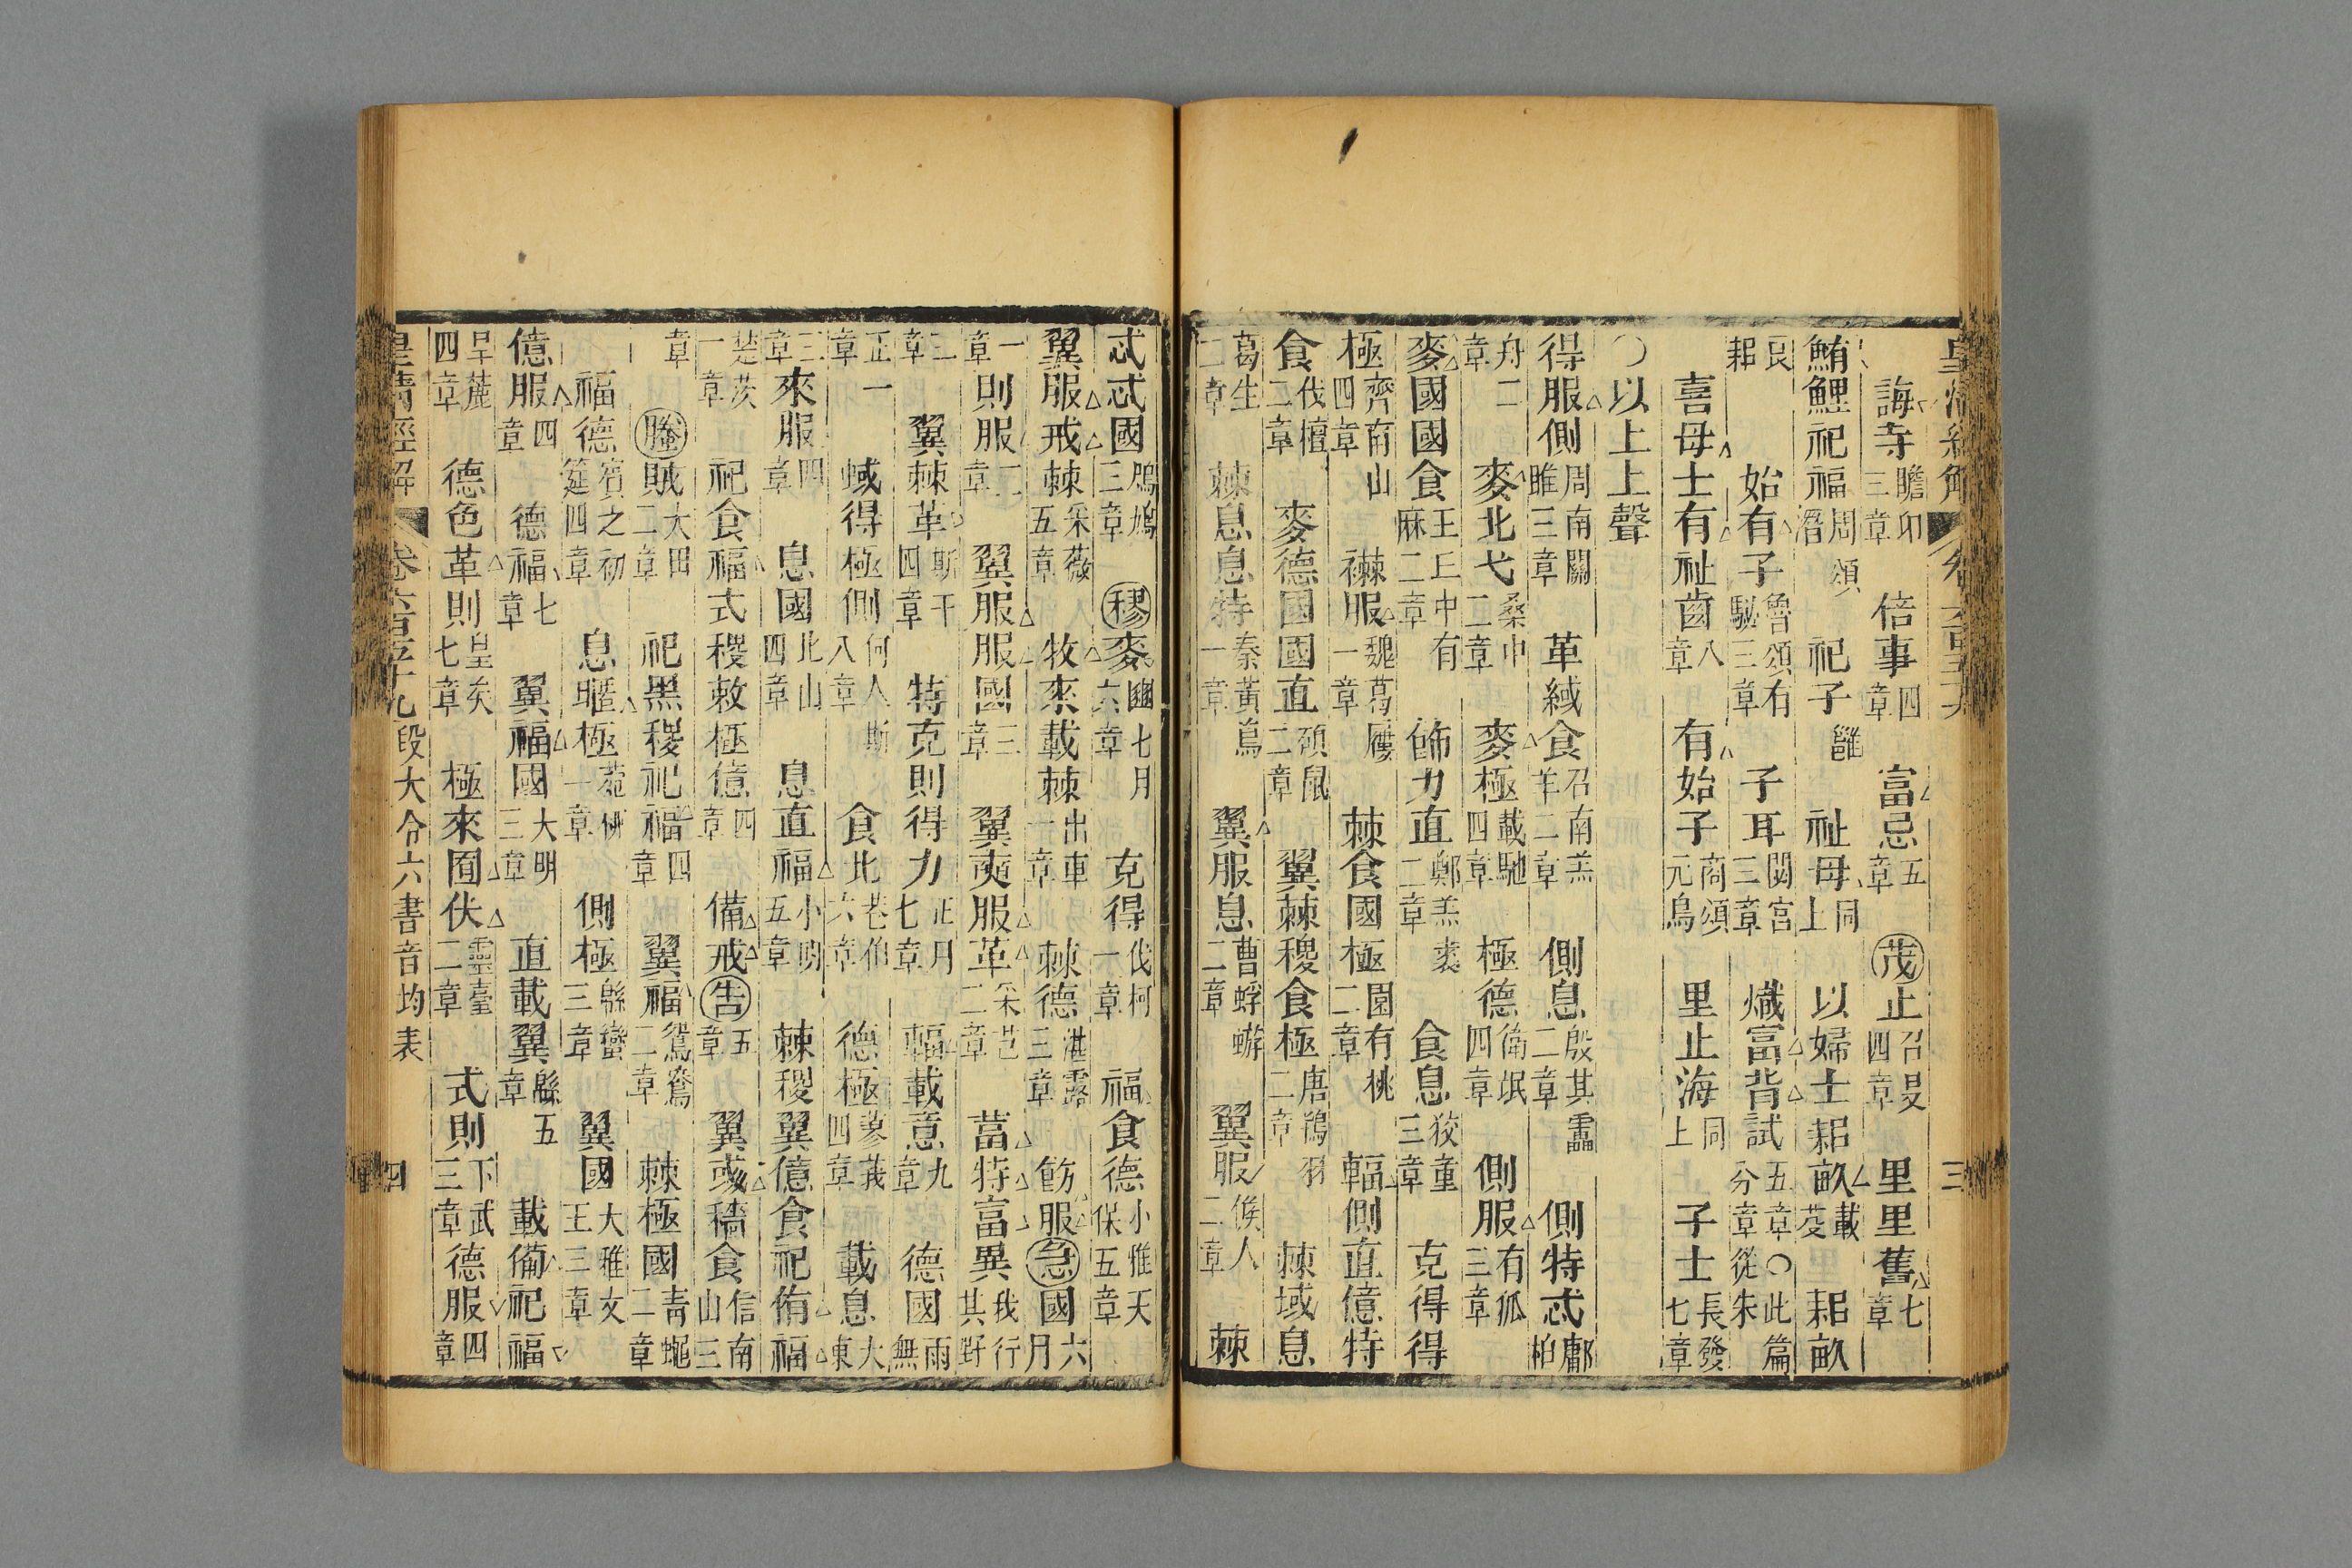 皇清經解 卷六百五十九 三
誨寺瞻卬三章 倍事四章 富忌五章 茂止召旻四章 里里舊七章
鮪鯉祀福周頌潛 祀子雝 祉母同上 以婦士耜畝載芟 耜畝
良耜 始有子魯頌有駜三章 子耳閟宮三章 熾富背試五章○此篇分章從朱
喜母士有祉齒八章 有始子商頌元鳥 里止海同上 子士長發七章
○以上上聲
得服側周南關雎三章 革緎食召南羔羊二章 側息殷其靁二章 側特忒鄘柏
舟二章 麥北弋桑中二章 麥極載馳四章 極德衛氓四章 側服有狐三章
麥國國食王丘中有麻二章 飾力直鄭羔裘二章 食息狡童三章 克得得
極齊南山四章 襋服魏葛屨一章 棘食國極園有桃二章 輻側直億特
食伐檀二章 麥德國國直碩鼠二章 翼棘稷食極唐鴇羽二章 棘域息
葛生二章 棘息息特秦黃鳥一章 翼服息曹蜉蝣二章 翼服候人二章 棘
忒忒國鳲鳩三章 穋麥豳七月六章 克得伐柯一章 福食德小雅天保五章
翼服戒棘采薇五章 牧來載棘出車一章 棘德湛露三章 飭服急國六月
一章 則服二章 翼服服國三章 翼奭服革采芑二章 葍特富異我行其野
三章 翼棘革斯干四章 特克則得力正月七章 輻載意九章 德國雨無
正一章 蜮得極側何人斯八章 食北巷伯六章 德極蓼莪四章 載息大東
三章 來服四章 息國北山四章 息直福小明五章 棘稷翼億食祀侑福
楚茨一章 祀食福式稷敕極億四章 備戒告五章 翼彧穡食信南山三
章 螣賊大田二章 祀黑稷祀福四章 翼福鴛鴦二章 棘極國青蠅二章
福德賓之初筵四章 息暱極菀柳一章 側極緜蠻三章 翼國大雅文王三章
億服四章 德福七章 翼福國大明三章 直載翼緜五章 載備祀福
旱麓四章 德色革則皇矣七章 極來囿伏靈臺二章 式則下武三章 德服四章
皇清經解 卷六百五十九 段大令六書音均表 四